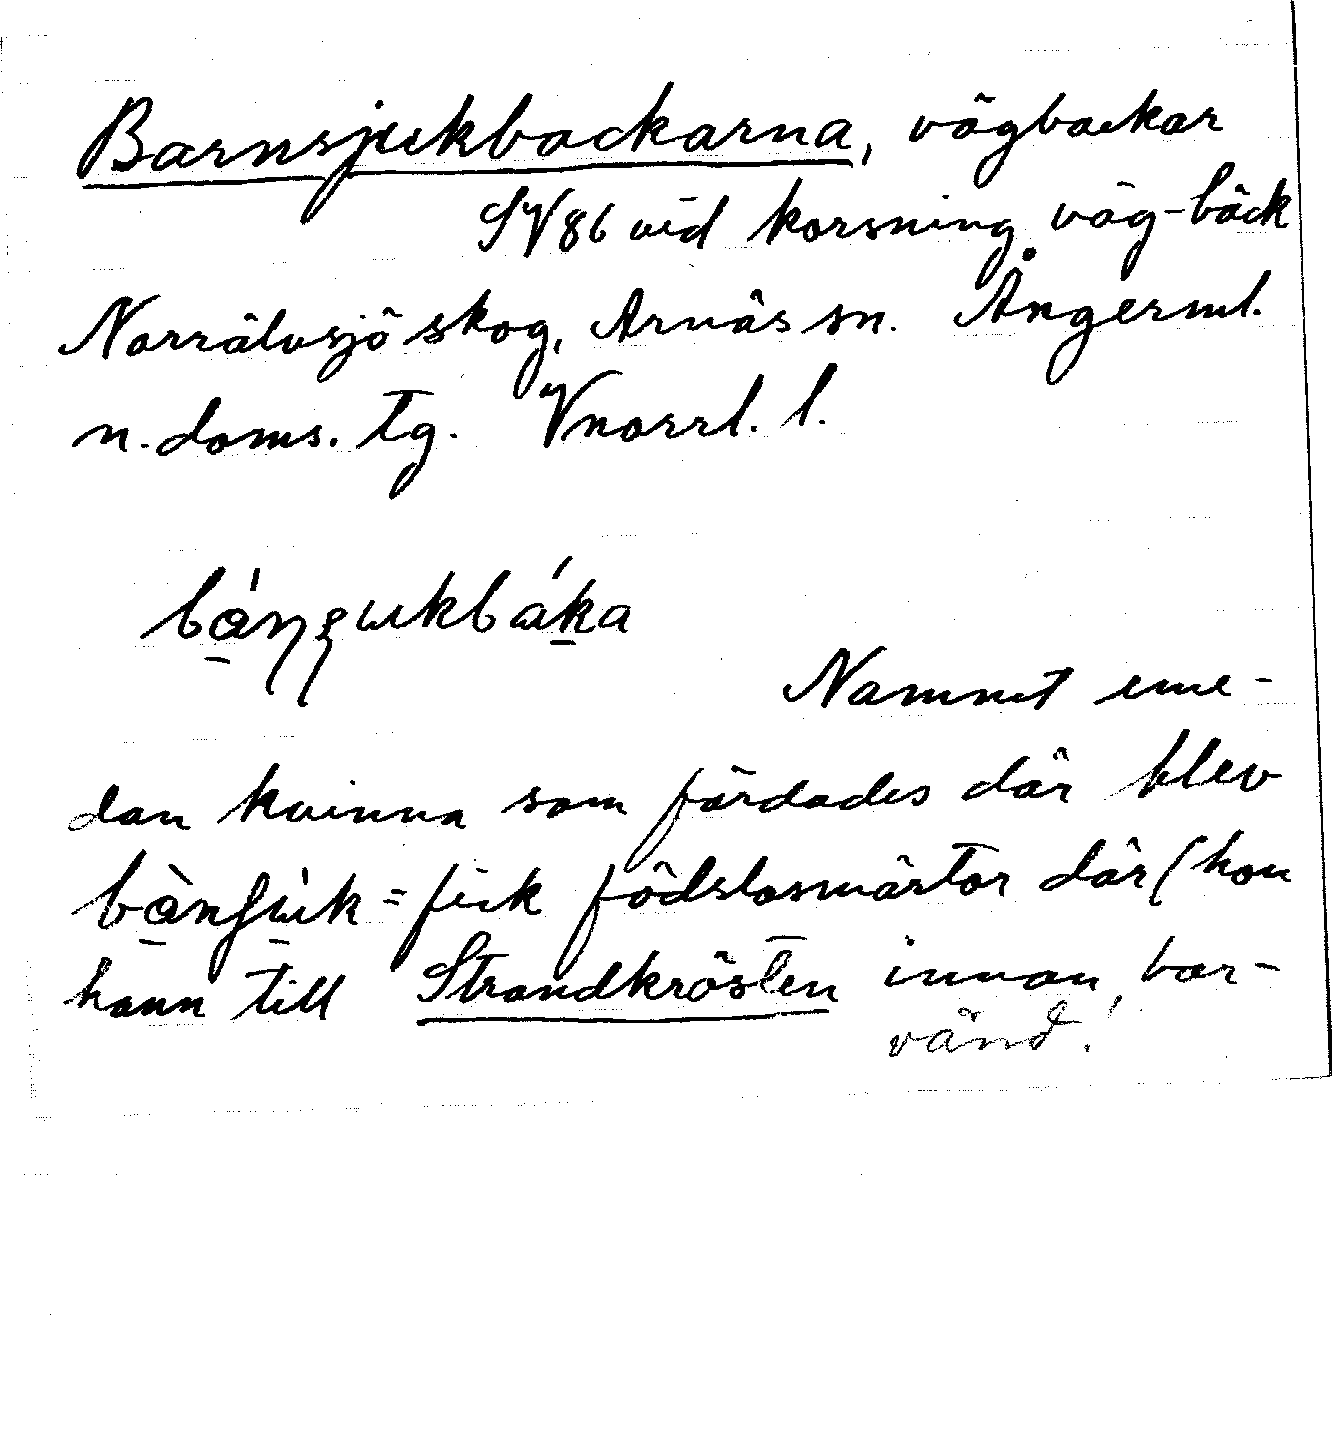 Barnsjukbackarna, vägbackar
SV86 vid korsning väg-bäck
Norrälvsjö skog, Arnäs sn. Ångerml.
n. doms. tg. Vnorrl. l.
Namnet eme-
dan kvinna som färdades där blev
= fick födslosmärtor där (hon
hann till Strandkrösten innan bar-
vänd!